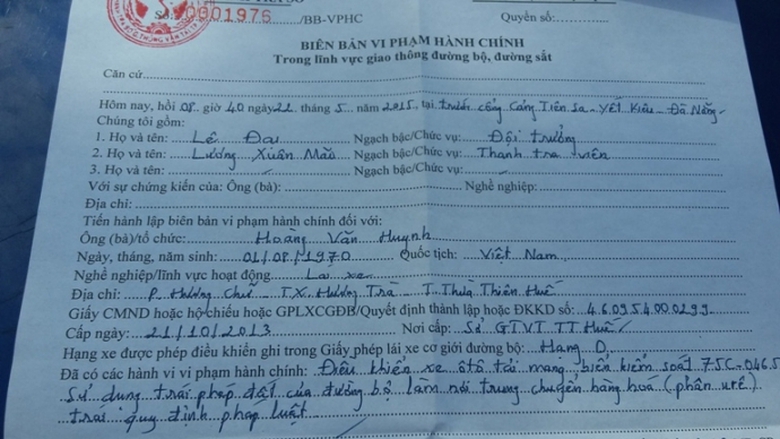 Số: 0001976 /BB-VPHC Quyển số:
BIÊN BẢN VI PHẠM HÀNH CHÍNH
Trong lĩnh vực giao thông đường bộ, đường sắt
Căn cứ
Hôm nay, hồi 08 giờ 40 ngày 22 tháng 5 năm 2015, tại trước cổng Cảng Tiên Sa - Yết Kiêu - Đà Nẵng
Chúng tôi gồm:
1. Họ và tên: Lê Đại Ngạch bậc/Chức vụ: Đội trưởng
2. Họ và tên: Lương Xuân Mão Ngạch bậc/Chức vụ: Thanh tra viên
3. Họ và tên: Ngạch bậc/Chức vụ:
Với sự chứng kiến của: Ông (bà): Nghề nghiệp:
Địa chỉ:
Tiến hành lập biên bản vi phạm hành chính đối với:
Ông (bà)/tổ chức: Hoàng Văn Huynh
Ngày, tháng, năm sinh: 01/08/1970 Quốc tịch: Việt Nam
Nghề nghiệp/lĩnh vực hoạt động Lái xe
Địa chỉ: P. Hương Chữ T.X. Hương Trà T. Thừa Thiên Huế
Giấy CMND hoặc hộ chiếu hoặc GPLXCGĐB/Quyết định thành lập hoặc ĐKKD số: 460954000299
Cấp ngày: 21/10/2013 Nơi cấp: Sở GTVT TT Huế
Hạng xe được phép điều khiển ghi trong Giấy phép lái xe cơ giới đường bộ: Hạng D
Đã có các hành vi vi phạm hành chính: Điều khiển xe ôtô tải mang biển kiểm soát 75C-046.5
Sử dụng trái phép đất của đường bộ làm nơi trung chuyển hàng hoá (phân urê)
trái quy định pháp luật